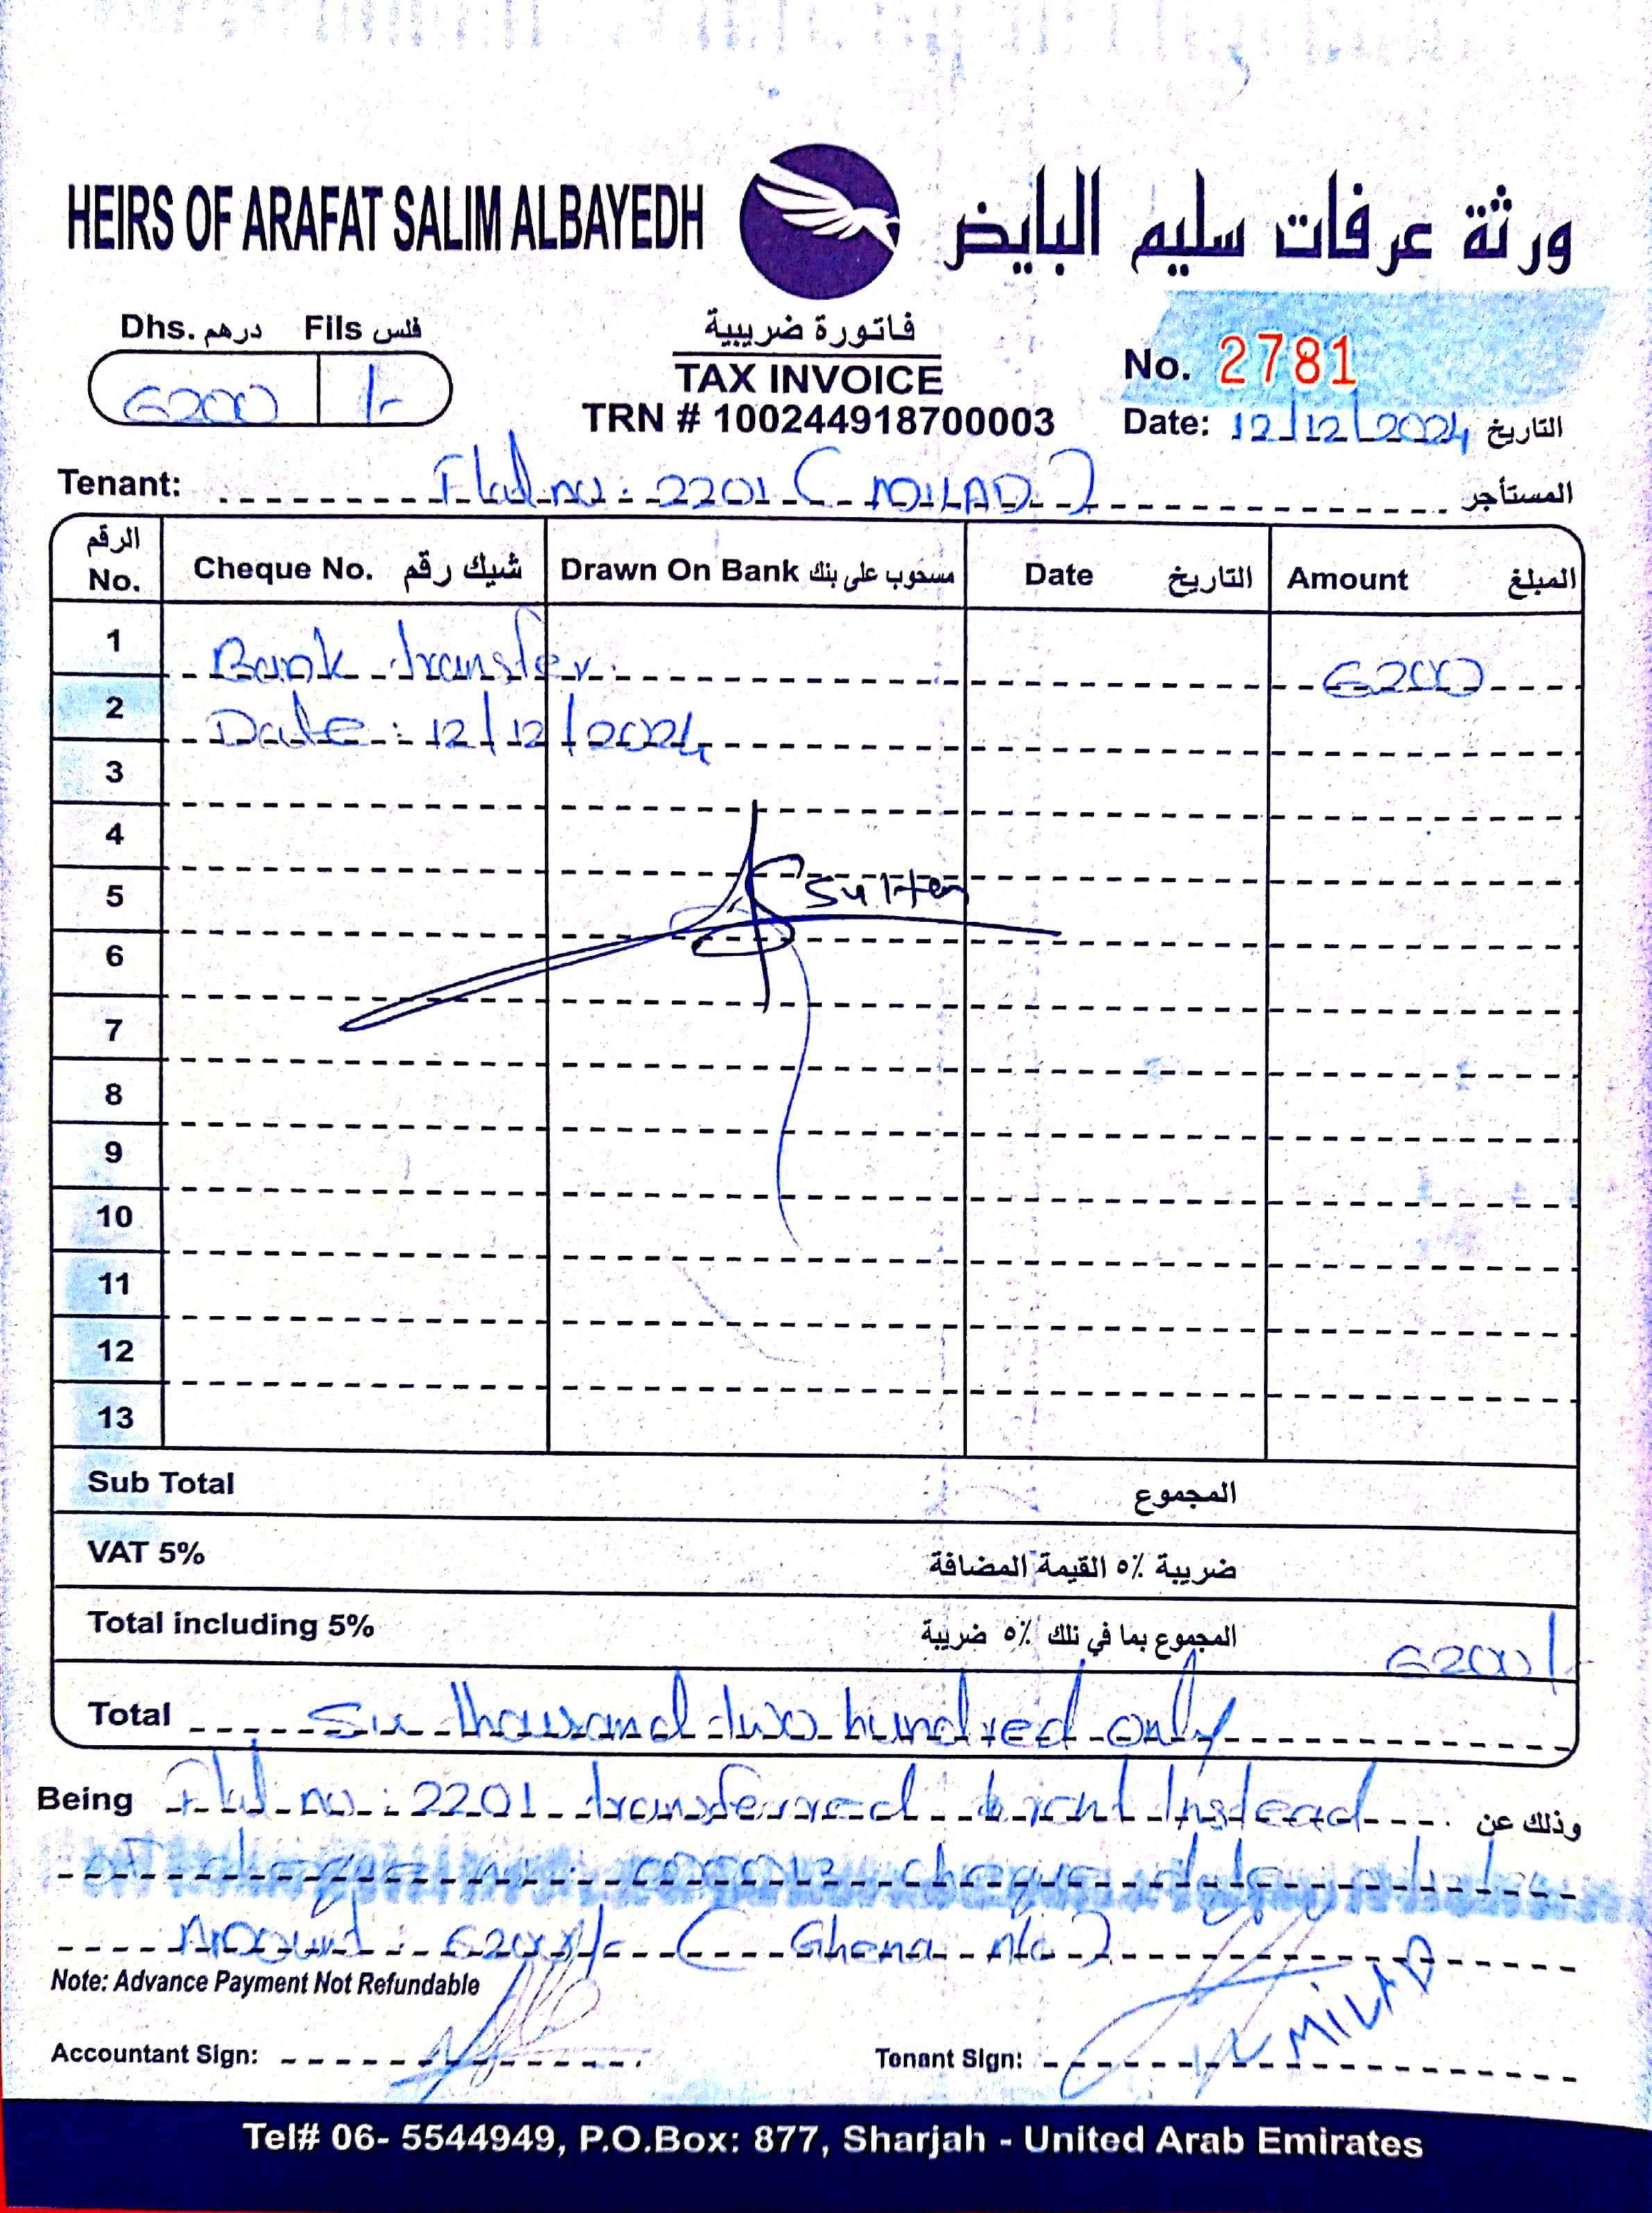 HEIRS OF ARAFAT SALIM ALBAYEDH
ورثة عرفات سليم البايض
Dhs. درهم Fils فلس
6200 /-
فاتورة ضريبية
TAX INVOICE
TRN # 100244918700003
No. 2781
Date: 12/12/2024 التاريخ
Tenant: Flat no: 2201 (MILAD) المستأجر
الرقم No. Cheque No. شيك رقم Drawn On Bank مسحوب على بنك Date التاريخ Amount المبلغ
1 Bank transfer. 6200
2 Date: 12/12/2024
3
4
5 Sultan
6
7
8
9
10
11
12
13
Sub Total المجموع
VAT 5% ضريبة ٥٪ القيمة المضافة
Total including 5% المجموع بما في ذلك ٥٪ ضريبة 6200/
Total Six thousand two hundred only
Being Flat no: 2201 transferred rent Instead وذلك عن
cheque no: cheque date
Amount: 6200/- (Ghena A/c)
Note: Advance Payment Not Refundable
Accountant Sign:
Tenant Sign: MILAD
Tel# 06- 5544949, P.O.Box: 877, Sharjah - United Arab Emirates